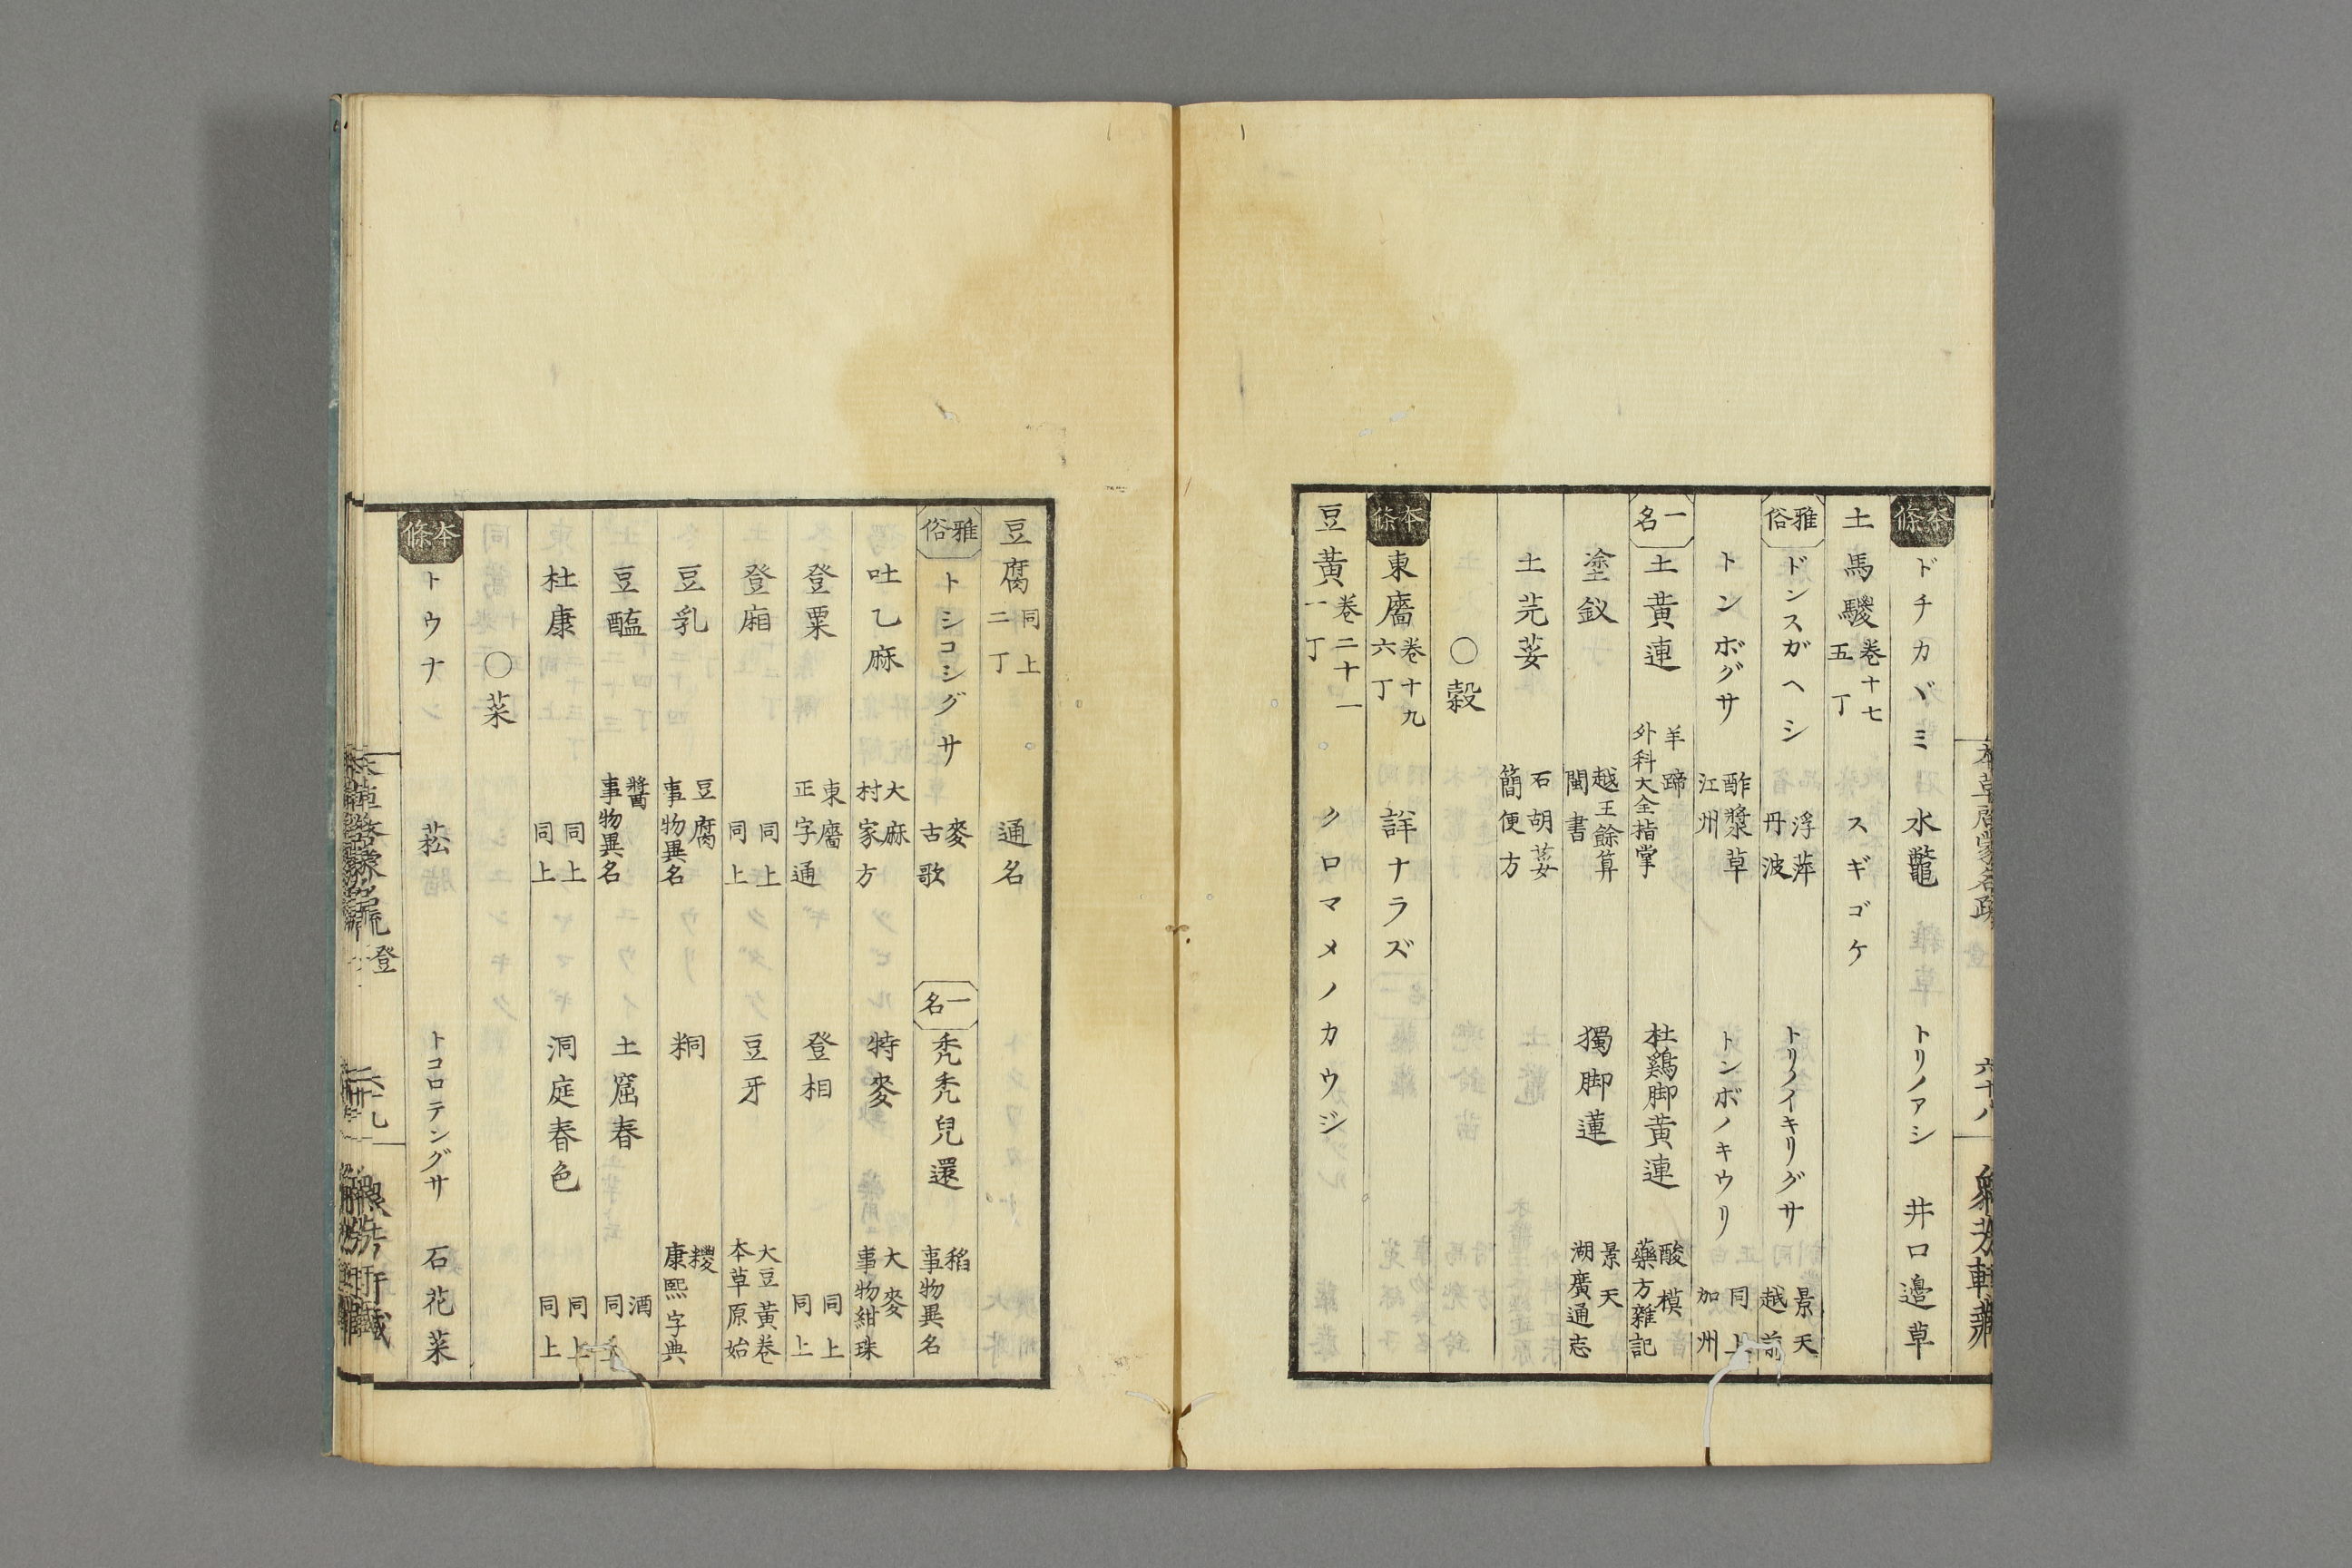 本條 ドチカヾミ 水鼈 トリノアシ 井口邉草
土馬騣 巻十七 五丁 スギゴケ
雅俗 ドンスガヘシ 浮萍 丹波 トリノイキリグサ 景天 越前
トンボグサ 酢漿草 江州 トンボノキウリ 同上 加州
一名 土黄連 羊蹄 外科大全指掌 杜鷄脚黄連 酸模 藥方雜記
塗釵 越王餘算 閩書 獨脚蓮 景天 湖廣通志
土芫荽 石胡荽 簡便方
〇穀
本條 東廧 巻十九 六丁 詳ナラズ
豆黄 巻二十一 一丁 クロマメノカウジ
豆腐 同上 二丁 通名
雅俗 トシコシグサ 麥 古歌 一名 禿禿兒還 稻 事物異名
吐乙麻 大麻 村家方 特麥 大麥 事物紺珠
登粟 東廧 正字通 登相 同上 同上
登廂 同上 同上 豆牙 大豆黄巻 本草原始
豆乳 豆腐 事物異名 粡 糉 康熙字典
豆醢 醬 事物異名 土窟春 酒 同上
杜康 同上 同上 洞庭春色 同上 同上
〇菜
本條 トウナ 菘 トコロテングサ 石花菜
登